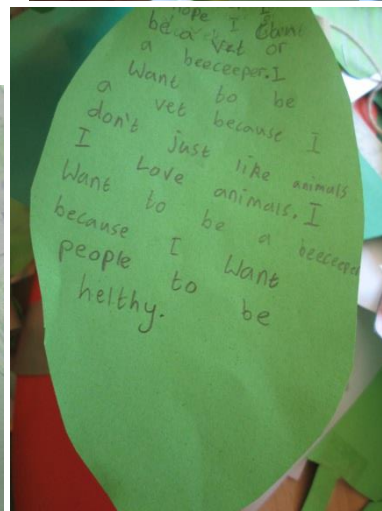 hope
be a vet or
a beeceeper. I
Want to be
a vet because I
don't just like animals
I Love animals. I
Want to be a beeceeper
because I Want
people to be
helthy.